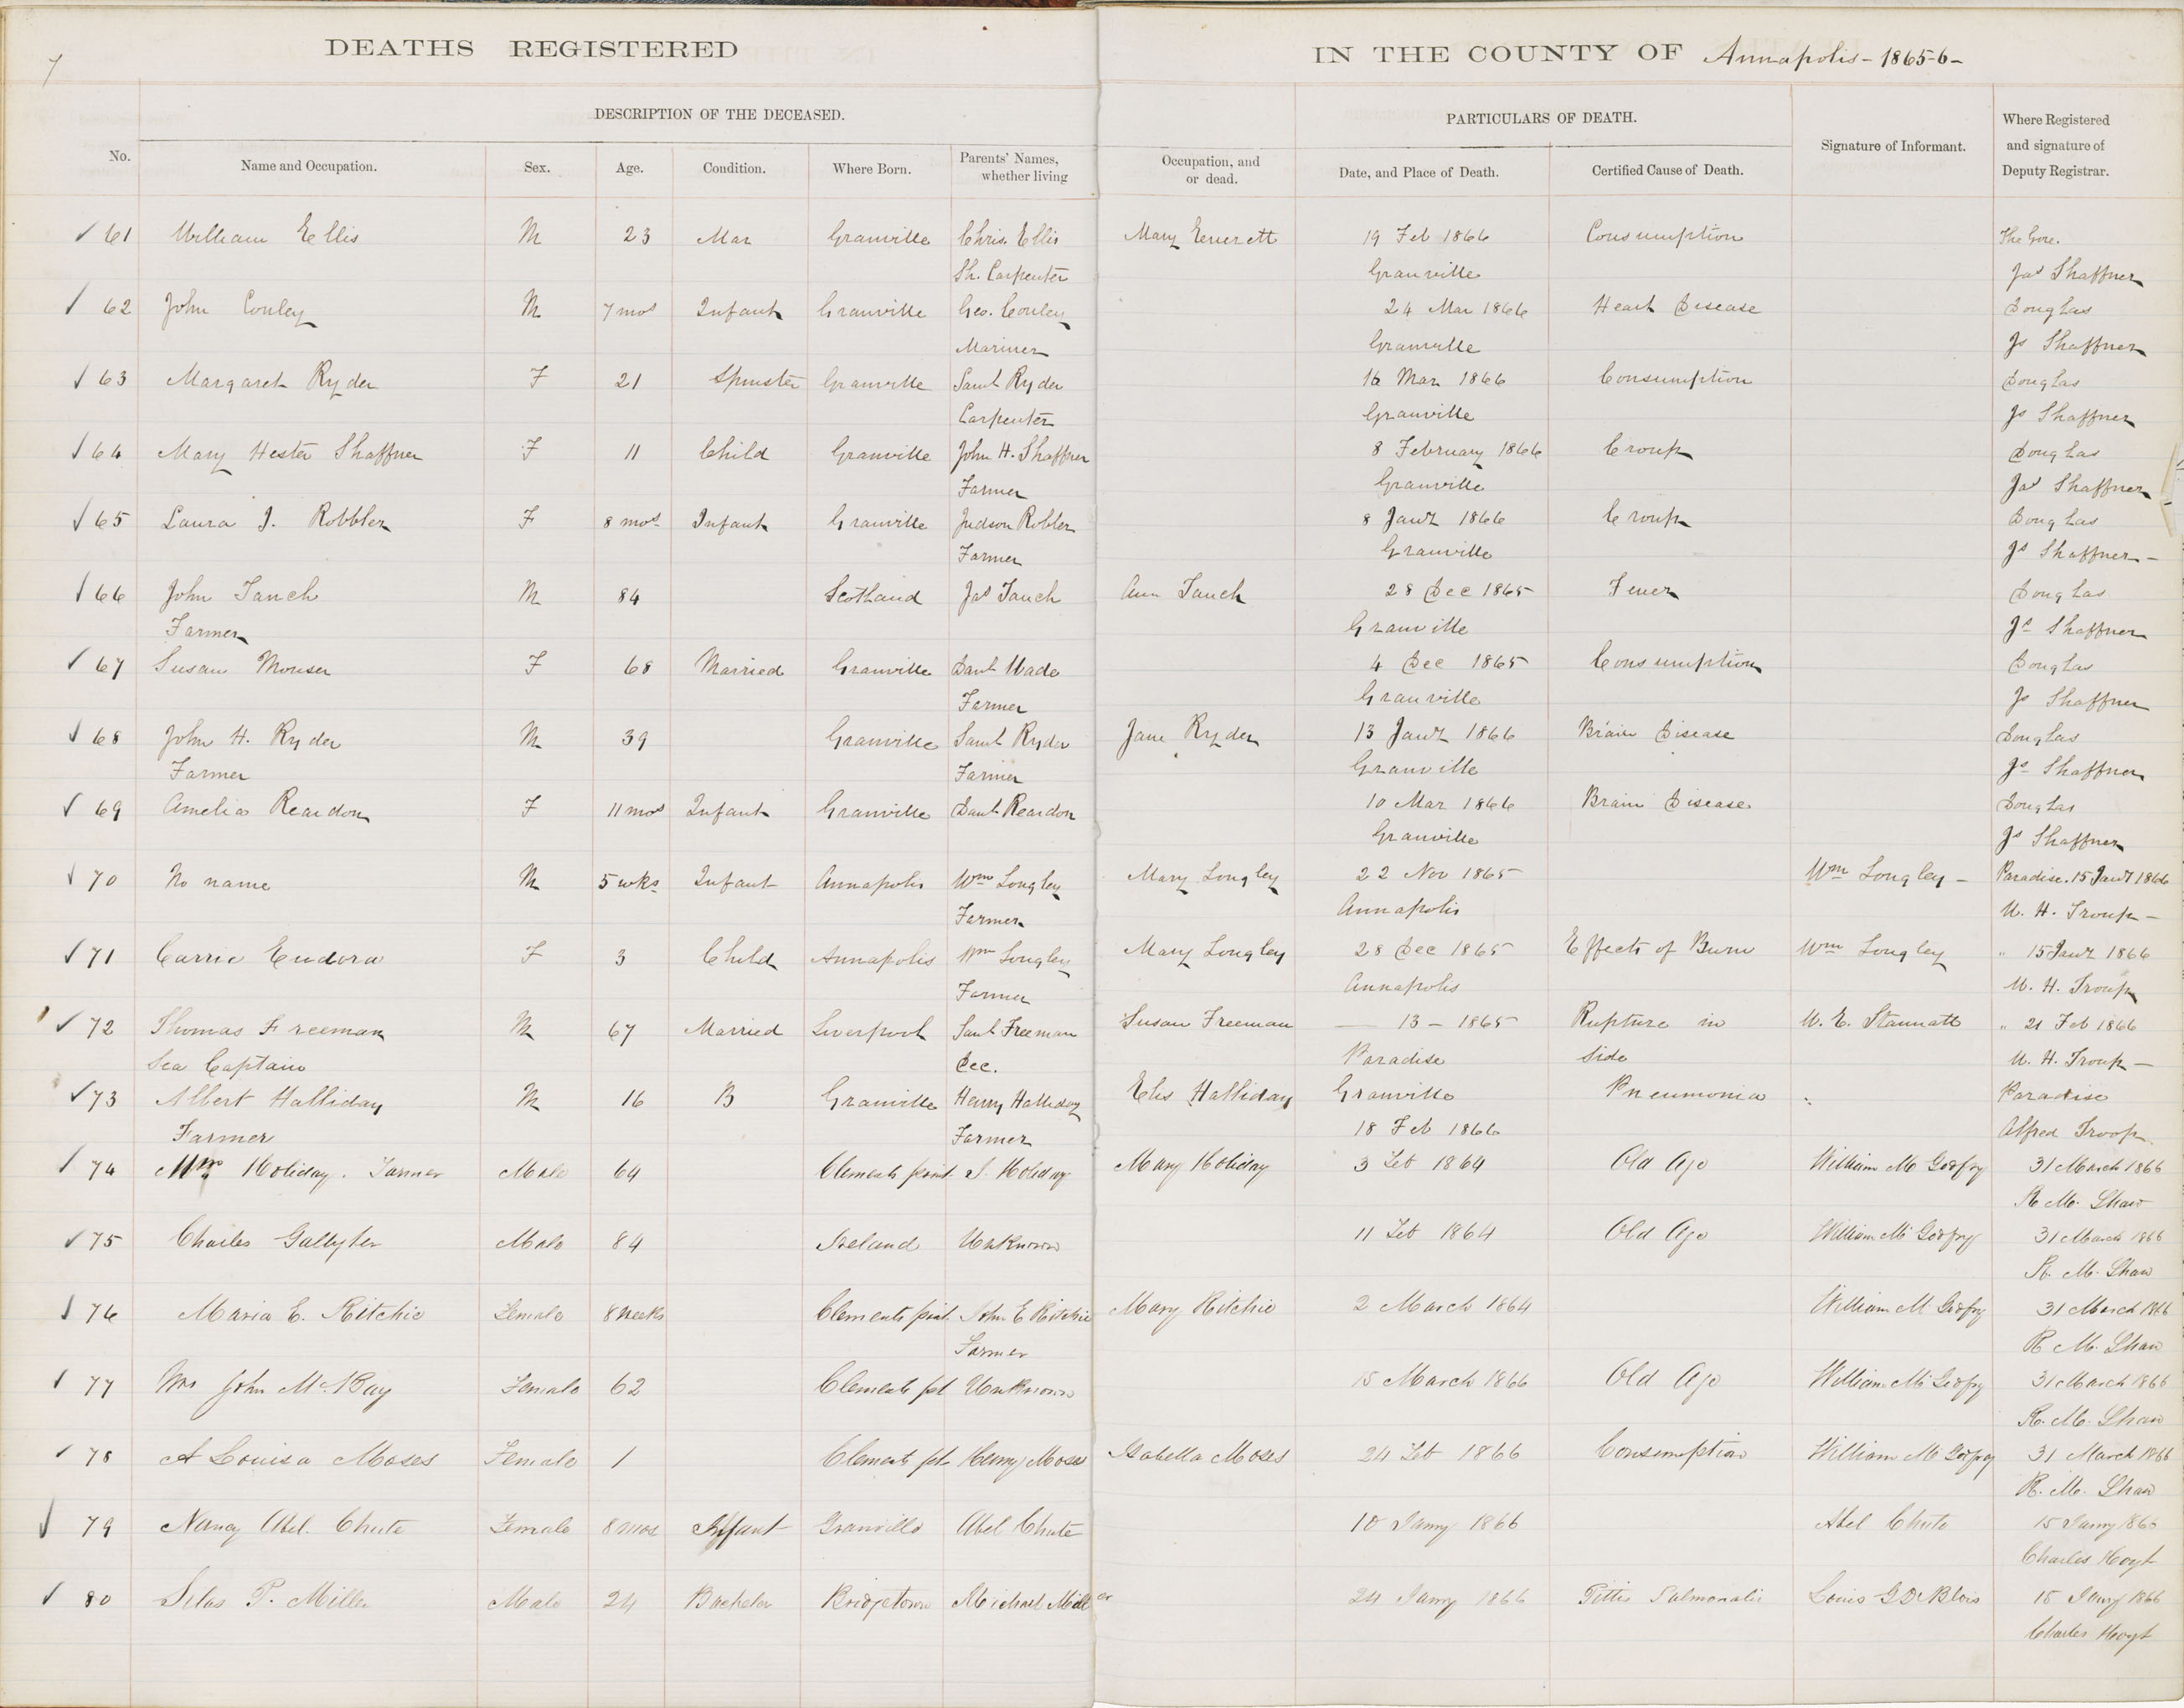 7
DEATHS REGISTERED IN THE COUNTY OF Annapolis - 1865-6 -
DESCRIPTION OF THE DECEASED. PARTICULARS OF DEATH.
No. Name and Occupation. Sex. Age. Condition. Where Born. Parents' Names, whether living Occupation, and or dead. Date, and Place of Death. Certified Cause of Death. Signature of Informant. Where Registered and signature of Deputy Registrar.
61 William Ellis M 23 Mar Granville Chris. Ellis Mary Everett 19 Feb 1866 Consumption The Gore.
Sh. Carpenter Granville Jas Shaffner
62 John Conley M 7 mos Infant Granville Geo. Conley 24 Mar 1866 Heart Disease Douglas
Mariner Granville Js Shaffner
63 Margaret Ryder F 21 Spinster Granville Saml Ryder 16 Mar 1866 Consumption Douglas
Carpenter Granville Js Shaffner
64 Mary Hester Shaffner F 11 Child Granville John H. Shaffner 8 February 1866 Croup Douglas
Farmer Granville Jas Shaffner
65 Laura J. Robbler F 8 mos Infant Granville Judson Robler 8 Jany 1866 Croup Douglas
Farmer Granville Js Shaffner -
66 John Tanch M 84 Scotland Jas Tanch Ann Tanch 28 Dec 1865 Fever Douglas
Farmer Granville Js Shaffner
67 Susan Mouser F 68 Married Granville Danl Wade 4 Dec 1865 Consumption Douglas
Farmer Granville Js Shaffner
68 John H. Ryder M 39 Granville Saml Ryder Jane Ryder 13 Jany 1866 Brain Disease Douglas
Farmer Farmer Granville Js Shaffner
69 Amelia Reardon F 11 mos Infant Granville Danl Reardon 10 Mar 1866 Brain Disease Douglas
Granville Js Shaffner
70 No name M 5 wks Infant Annapolis Wm Longley Mary Longley 22 Nov 1865 Wm Longley - Paradise. 15 Jany 1866
Farmer Annapolis W. H. Troup -
71 Carrie Eudora F 3 Child Annapolis Wm Longley Mary Longley 28 Dec 1865 Effects of Burn Wm Longley " 15 Jany 1866
Farmer Annapolis W. H. Troup
72 Thomas Freeman M 67 Married Liverpool Saml Freeman Susan Freeman — 13 - 1865 Rupture in W. E. " 21 Feb 1866
Sea Captain Dec. Paradise Side W. H. Troup -
73 Albert Halliday M 16 B Granville Henry Halliday Elis Halliday Granville Pneumonia Paradise
Farmer Farmer 18 Feb 1866 Alfred Troop
74 Wm Holiday. Farmer Male 64 Clements point S. Holiday Mary Holiday 3 Feb 1864 Old Age William Mc Godfry 31 March 1866
R. M. Shaw
75 Charles Male 84 Ireland Unknown 11 Feb 1864 Old Age William Mc Godfry 31 March 1866
R. M. Shaw
76 Maria E. Ritchie Female 8 weeks Clements point John E Ritchie Mary Ritchie 2 March 1864 William Mc Godfry 31 March 1866
Farmer R M. Shaw
77 Mrs John McKay Female 62 Clements pt Unknown 15 March 1866 Old Age William Mc Godfry 31 March 1866
R. M. Shaw
78 A Louisa Moses Female 1 Clements pt Henry Moses Isabella Moses 24 Feb 1866 Consumption William Mc Godfry 31 March 1866
R. M. Shaw
79 Nancy Abel. Chute Female 8 mos Infant Granville Abel Chute 10 Jany 1866 Abel Chute 15 Jany 1866
Charles Hoyt
80 Silas P. Miller Male 24 Bachelor Bridgetown Michael Miller 24 Jany 1866 Louis G DeBlois 15 Jany 1866
Charles Hoyt